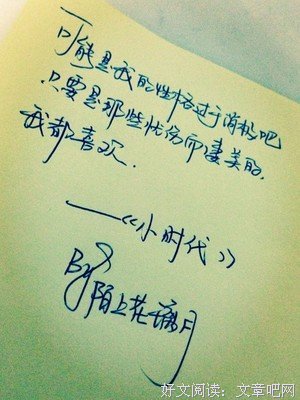 可能是我的性格过于消极吧
只要是那些忧伤而凄美的,
我都喜欢.
——《小时代》
By 陌上花
好文阅读:文章吧网